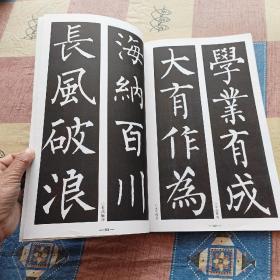 學業有成
大有作為
海納百川
長風破浪